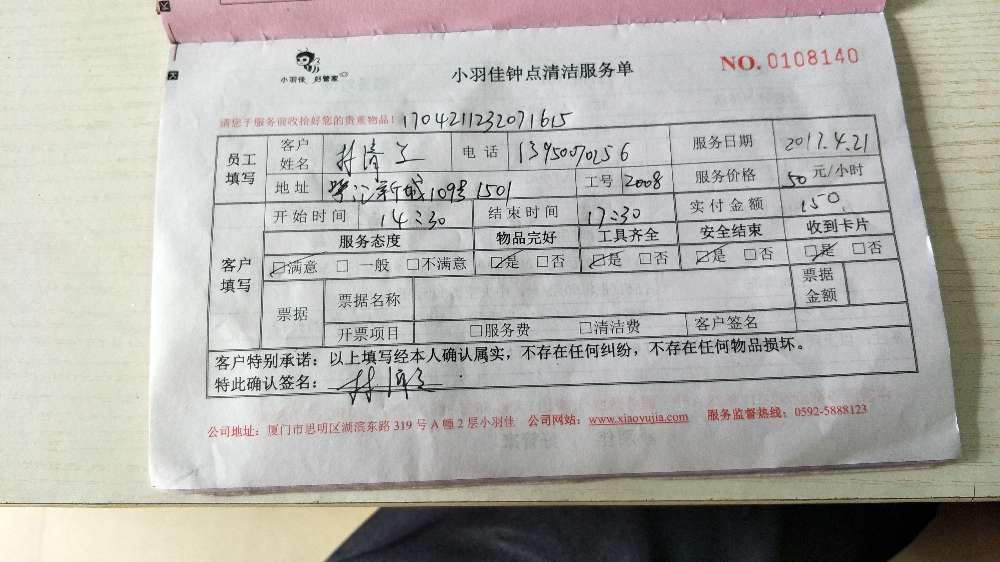 小羽佳 好管家
小羽佳钟点清洁服务单
NO. 0108140
请您于服务前收拾好您的贵重物品! 1704211232071615
员工填写 客户姓名 林 电话 13950070256 服务日期 2017.4.21
地址 新城109号1501 工号 2008 服务价格 50 元/小时
客户填写 开始时间 14:30 结束时间 17:30 实付金额 150
服务态度 物品完好 工具齐全 安全结束 收到卡片
☑满意 □ 一般 □不满意 ☑是 □否 ☑是 □否 ☑是 □否 ☑是 □否
票据 票据名称 票据金额
开票项目 □服务费 □清洁费 客户签名
客户特别承诺：以上填写经本人确认属实，不存在任何纠纷，不存在任何物品损坏。
特此确认签名： 林
公司地址：厦门市思明区湖滨东路 319 号 A 幢 2 层小羽佳 公司网站：www.xiaoyujia.com 服务监督热线：0592-5888123